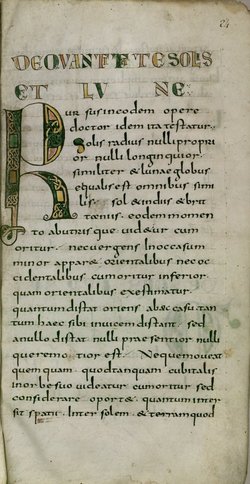 24
DEQVANTITATESOLIS
ET LV NE:
Rur sus ineodem opere
doctor idem ita testatur.
Solis radius nulli propri
or nulli longinquior.
similiter & lunae globus
equalis est omnibus simi
lis. sol & indis & brit
tannis. eodem momen
to ab utrisque videtur cum
oritur. nec vergens In occasum
minor appar& orientalibus nec oc
cidentalibus cum oritur inferior
quam orientalibus existimatur.
quantum distat oriens ab occasu. tan
tum haec sibi invicem distant. sed
a nullo distat nulli praesentior nulli
que remotior est. Neque moveat
quemquam quod tanquam cubitalis
in orbe suo videatur cum oritur sed
considerare oport& quantum inter
sit spatii. Inter solem & terram quod